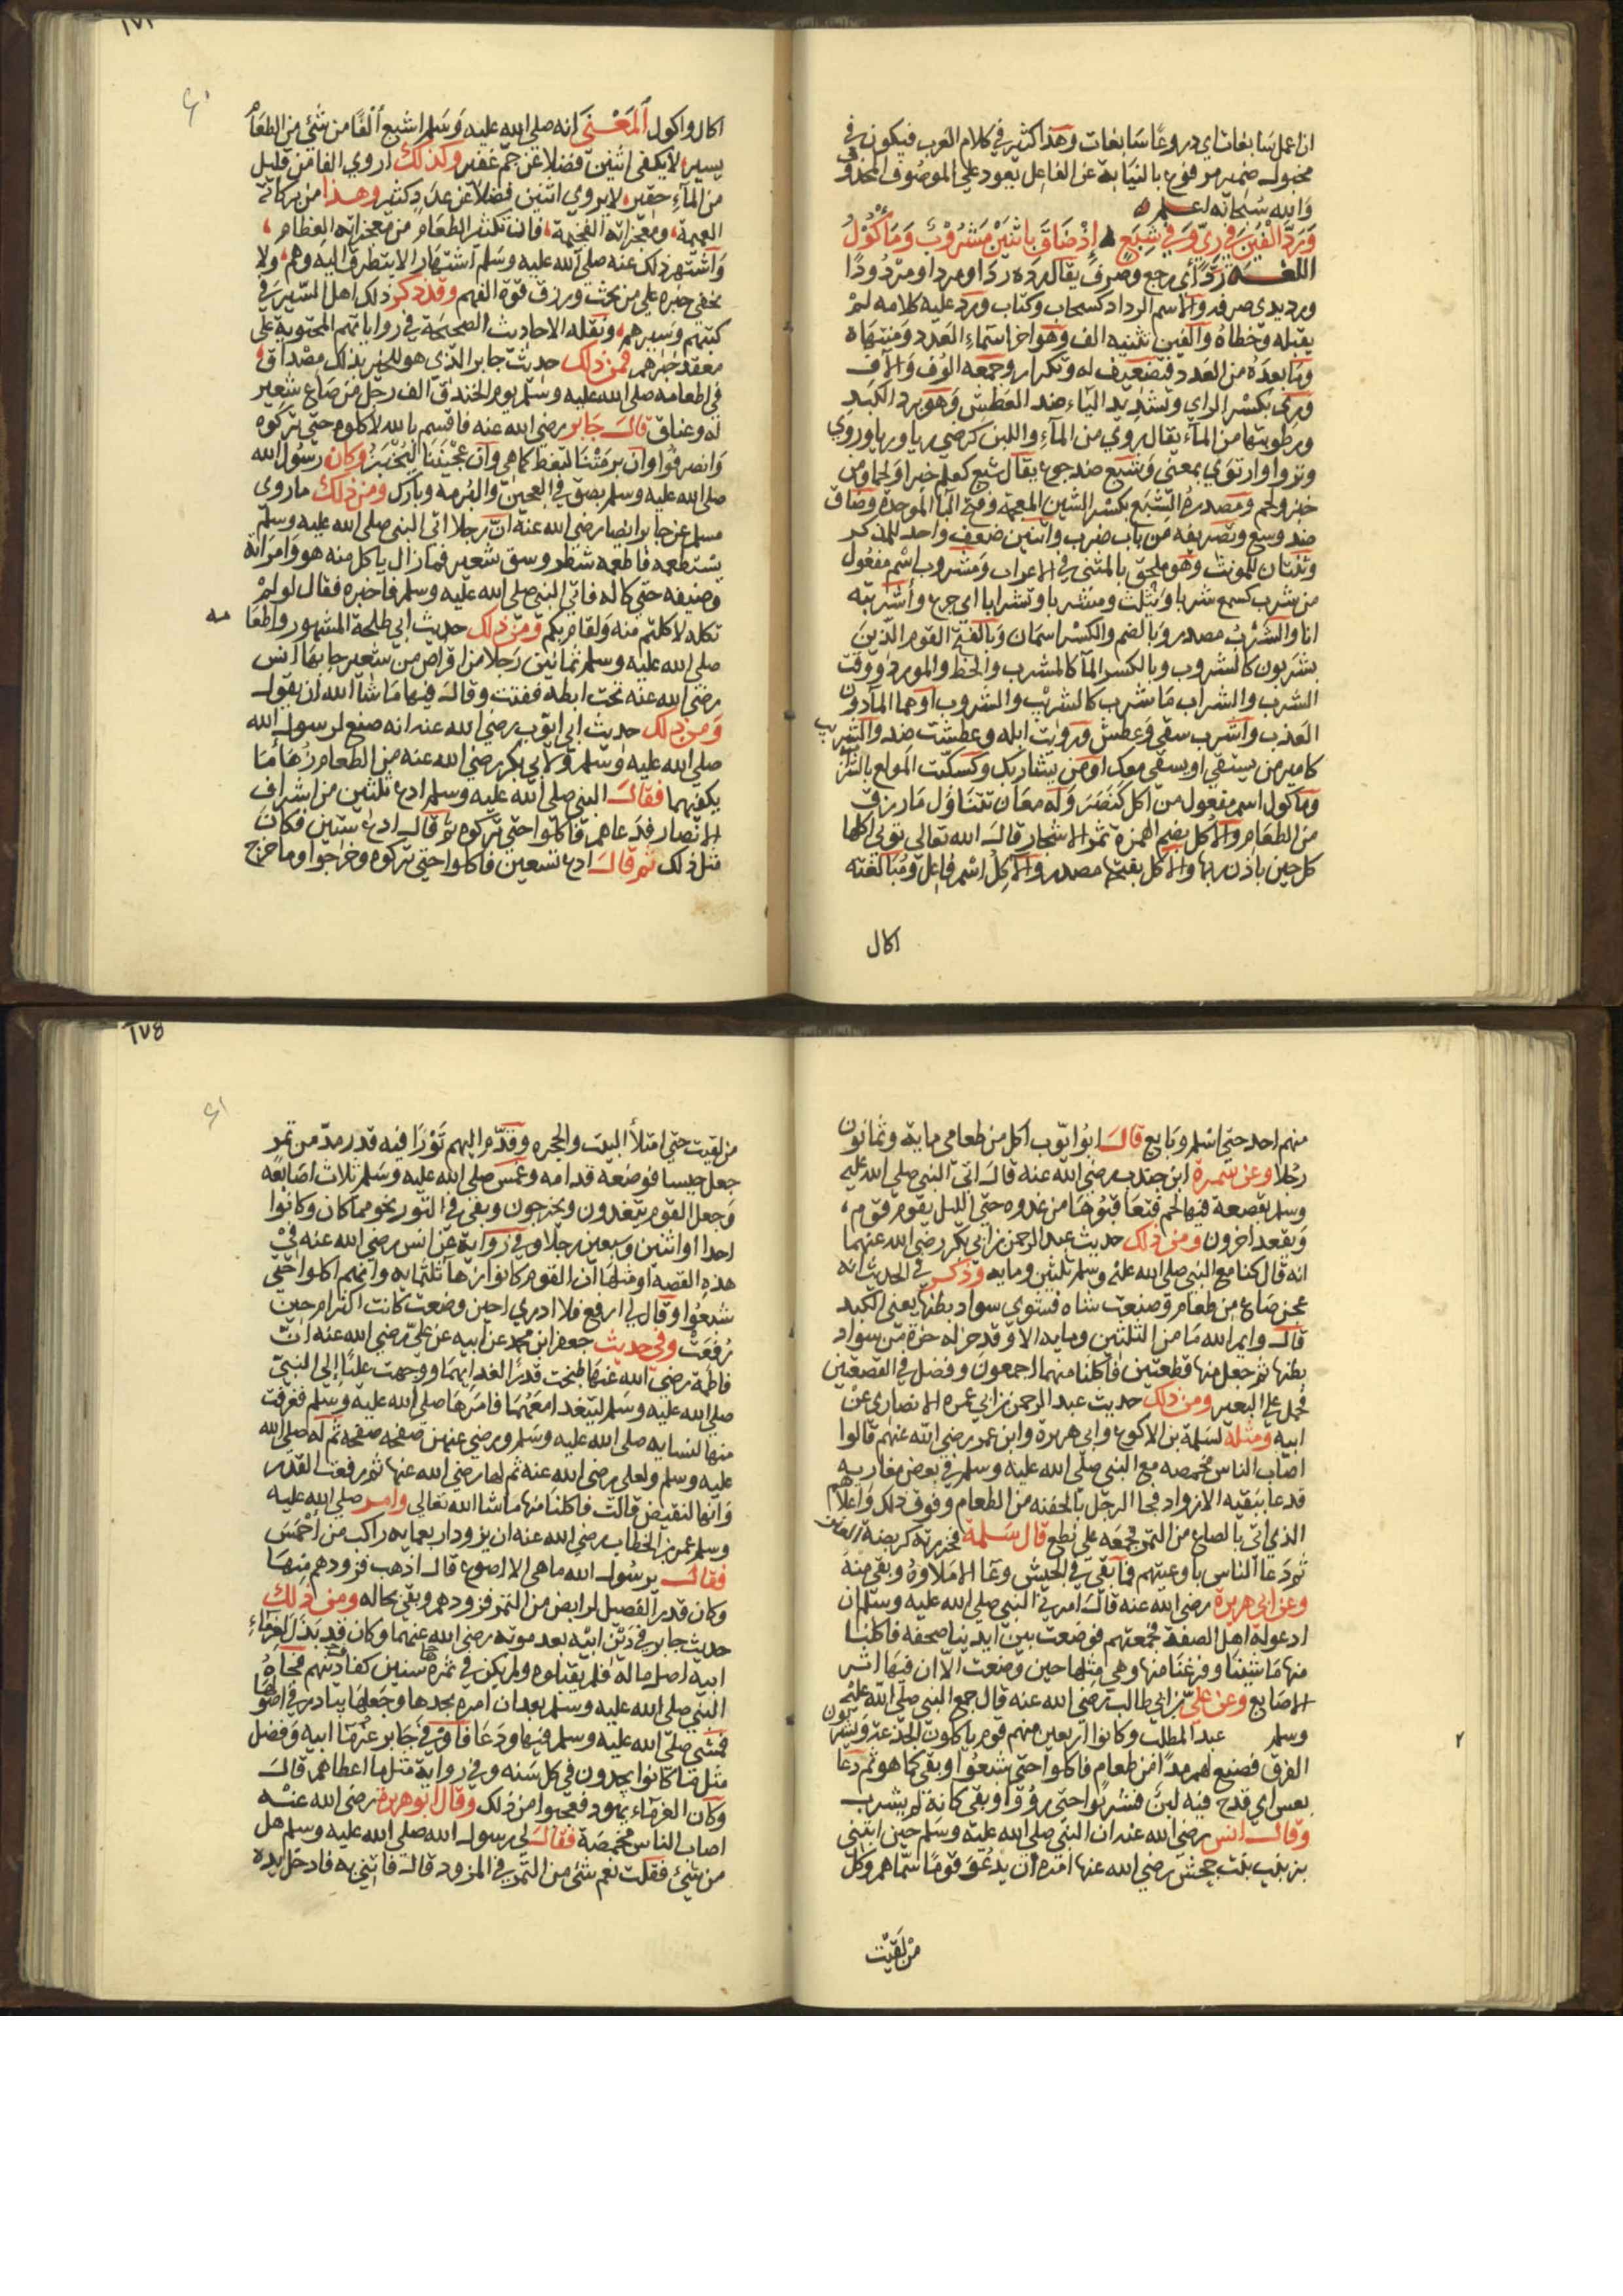 ان اعمل سابغات اي دروعا سابغات وهذا كثير في كلام العرب فيكون في
مجبول ضمير مرفوع بالنيابة عن الفاعل يعود علي الموصوف المحذوف
والله سبحانه اعلم
وَرَدَّ اَلْفَيْنِ في رِيٍّ وَفي شِبَعٍ إِذْ ضَاقَ بِاثْنَيْنِ مَشْرُوْبٌ وَمَأْكُوْلُ
اللغة رد اي رجع وصرف يقال رده ردا ومردا ومردودا
ورديدي صرفه والاسم الرداد كسحاب وكتاب ورد عليه كلامه لم
يقبله وخطاه والفين تثنيه الف وهو اخر اسماء العدد ومنتهاه
وما بعده من العدد فتضعيف له وتكرار وجمعه الوف والاف
وري بكسر الراي وتشديد الياء ضد العطش وهو برد الكبد
ورطوبتها من الماء يقال روي من الماء واللبن كرضي ريا وريا وروي
وتروا وارتوي بمعني وشبع ضد جوع يقال شبع كعلم خبزا ولحما ومن
خبز ولحم ومصدره الشبع بكسر الشين المعجمة وفتح البا الموحدة وضاق
ضد وسع وتصريفه من باب ضرب واثنين ضعف واحد للمذكر
وثنتان للمونث وهو ملحق بالمثني في الاعراب ومشروب اسم مفعول
من شرب كسمع شربا ويثلث ومشربا وتشرابا اي جرع واشربته
انا والشرب مصدر وبالضم والكسر اسمان وبالفتح القوم الذين
يشربون كالشروب وبالكسر الما كالمشرب والحظ والمورد ووقت
الشرب والشراب ما شرب كالشريب والشروب او هما الما دون
العذب واشرب سقي وعطش ورويت ابله وعطشت ضد والشريب
كامير من يستقي او يسقي معك او من يشاربك وكسكيت المولع بالشراب
وماكول اسم مفعول من اكل كنصر وله معان تناول ما رزق
من الطعام والاكل بضم الهمزة ثمر الاشجار قال الله تعالي تؤتي اكلها
كل حين باذن ربها والاكل بفتحها مصدر والاكل اسم فاعل ومبالغته
اكال
اكال واكول المعنى انه صلي الله عليه وسلم اشبع الفا من شئ من الطعام
يسير لا يكفي اثنين فضلا عن جم غفير وكذلك اروي الفا من قليل
من الماء حقير لا يروي اثنين فضلا عن عدد كثير وهذا من بركاته
العميمة ومعجزاته الفخيمة فان تكثير الطعام من معجزاته العظام
واشتهر ذلك عنه صلي الله عليه وسلم اشتهارا لا يتطرق اليه وهم ولا
يخفي خبره علي من بحث ورزق قوة الفهم وقد ذكر ذلك اهل السير في
كتبهم وسيرهم ونقله الاحاديث الصحيحة في رواياتهم المحتوية علي
معقد خبرهم فمن ذلك حديث جابر الذي هو للخبر بذلك مصداق
في اطعامه صلي الله عليه وسلم يوم الخندق الف رجل من صاع شعير
له وعناق قال جابر رضي الله عنه فاقسم بالله لاكلوه حتي تركوه
وانصرفوا وان برمتنا لتغط كما هي وان عجيننا ليخبز وكان رسول الله
صلي الله عليه وسلم بصق في العجين والبرمه وبارك ومن ذلك ما روي
مسلم عن جابر ايضا رضي الله عنه ان رجلا اتي النبي صلي الله عليه وسلم
يستطعمه فاطعمه شطر وسق شعير فما زال ياكل منه هو وامراته
وضيفه حتي كاله فاتي النبي صلي الله عليه وسلم فاخبره فقال لو لم
تكله لاكلتم منه ولقام بكم ومن ذلك حديث ابي طلحة المشهور واطعامه
صلي الله عليه وسلم ثمانين رجلا من اقراص من شعير جا بها انس
رضي الله عنه تحت ابطه ففتت وقال فيها ما شا الله ان يقول
ومن ذلك حديث ابي ايوب رضي الله عنه انه صنع لرسول الله
صلي الله عليه وسلم ولابي بكر رضي الله عنه من الطعام زها ما
يكفيهما فقال النبي صلي الله عليه وسلم ادع ثلثين من اشراف
الانصار فدعاهم فاكلوا حتي تركوه ثم قال ادع ستين فكان
مثل ذلك ثم قال ادع تسعين فاكلوا حتي تركوه وخرجوا وما خرج
١٧٤
منهم احد حتي اسلم وبايع قال ابو ايوب اكل من طعامي ماية وثمانون
رجلا وعن سمرة ابن جندب رضي الله عنه قال اتي النبي صلي الله عليه
وسلم بقصعة فيها لحم فتعاقبوها من غدوه حتي الليل يقوم قوم
ويقعد اخرون ومن ذلك حديث عبد الرحمن بن ابي بكر رضي الله عنهما
انه قال كنا مع النبي صلي الله عليه وسلم ثلثين ومايه وذكر في الحديث انه
عجن صاع من طعام وصنعت شاه فشوي سواد بطنها يعني الكبد
قال وايم الله ما من الثلثين ومايه الا وقد حز له حزة من سواد
بطنها ثم جعل منها قصعتين فاكلنا منهما اجمعون وفضل في القصعتين
فحمل علي البعير ومن ذلك حديث عبد الرحمن بن ابي عمره الانصاري عن
ابيه ومثله لسلمة بن الاكوع وابي هريرة وابن عمر رضي الله عنهم قالوا
اصاب الناس مخمصه مع النبي صلي الله عليه وسلم في بعض مغازيه
فدعا ببقيه الازواد فجا الرجل بالحفنه من الطعام وفوق ذلك واعلاهم
الذي اتي بالصاع من التمر فجمعه علي نطع قال سلمة فحزرته كربضة العنز
ثم دعا الناس باوعيتهم فما بقي في الجيش وعا الا ملاوه وبقي منه
وعن ابي هريرة رضي الله عنه قال امرني النبي صلي الله عليه وسلم ان
ادعو له اهل الصفة فجمعتهم فوضعت بين ايدينا صحفه فاكلنا
منها ما شئنا وفرغنا منها وهي مثلها حين وضعت الا ان فيها اثر
الاصابع وعن علي بن ابي طالب رضي الله عنه قال جمع النبي صلي الله عليه
وسلم عبد المطلب وكانوا اربعين منهم قوم ياكلون الجذعة ويشربون
الفرق فصنع لهم مدا من طعام فاكلوا حتي شبعوا وبقي كما هو ثم دعا
بعس اي قدح فيه لبن فشربوا حتي رووا وبقي كانه لم يشرب
وقال انس رضي الله عنه ان النبي صلي الله عليه وسلم حين ابتني
بزينب بنت جحش رضي الله عنها امره ان يدعو قوما سماهم وكل
من لقيت
من لقيت حتي امتلأ البيت والحجره وقدم اليهم تورا فيه قدر مد من تمر
جعل حيسا فوضعه قدامه وغمس صلي الله عليه وسلم ثلاث اصابعه
وجعل القوم يتغدون ويخرجون وبقي في التور نحو مما كان وكانوا
احدا او اثنين وسبعين رجلا وفي رواية عن انس رضي الله عنه في
هذه القصه او مثلها ان القوم كانوا زها ثلثمايه وانهم اكلوا حتي
شبعوا وقال لي ارفع فلا ادري احين وضعت كانت اكثر ام حين
رفعت وفي حديث جعفر ابن محمد عن ابيه عن علي رضي الله عنه ان
فاطمة رضي الله عنها طبخت قدرا لغدايهما ووجهت عليا الي النبي
صلي الله عليه وسلم ليتغدا معهما فامرها صلي الله عليه وسلم فغرفت
منها لنسايه صلي الله عليه وسلم ورضي عنهن صفحه صفحه ثم له صلي الله
عليه وسلم ولعلي رضي الله عنه ثم لها رضي الله عنها ثم رفعت القدر
وانها لتفيض قالت فاكلنا منها ما شا الله تعالي وامر صلي الله عليه
وسلم عمر بن الخطاب رضي الله عنه ان يزود اربعمايه راكب من احمس
فقال يرسول الله ما هي الا اصوع قال اذهب فزودهم منها
وكان قدر الفصيل الرابض من التمر فزودهم وبقي بحاله ومن ذلك
حديث جابر في دين ابيه بعد موته رضي الله عنهما وكان قد بذل لغرماء
ابيه اصل ماله فلم يقبلوه ولم يكن في ثمرها سنين كفاف دينهم فجاه
النبي صلي الله عليه وسلم بعد ان امره بجدها وجعلها بيادر في اصولها
فمشي صلي الله عليه وسلم فيها ودعا فاوفي جابر غرما ابيه وفضل
مثل ما كانوا يجدون في كل سنه وفي رواية مثل ما اعطاهم قال
وكان الغرماء يهود فعجبوا من ذلك وقال ابو هريرة رضي الله عنه
اصاب الناس مخمصة فقال لي رسول الله صلي الله عليه وسلم هل
من شئ فقلت نعم شئ من التمر في المزود قال فاتني به فادخل يده